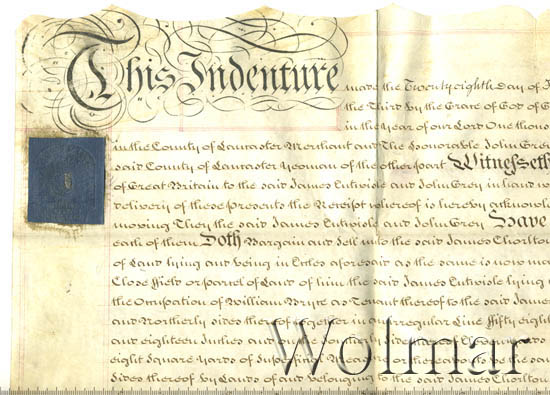 This Indenture made the Twenty eighth day of
the Third by the Grace of God of
in the Year of our Lord One thous
in the County of Lancaster Merchant and The Honorable John Grey
said County of Lancaster Yeoman of the other part Witnesseth
of Great Britain to the said James Entwisle and John Grey in hand
delivery of these presents the Receipt whereof is hereby acknowle
moving They the said James Entwisle and John Grey Have
each of them Doth Bargain and Sell unto the said James Chorlton
of Land lying and being in aforesaid as the same is now
Close field or parcel of Land of him the said James Entwisle lying
the Occupation of William as Tenant thereof to the said James
and Northerly sides thereof together in an irregular Line fifty eight
and eighteen Inches and on the
eight Square Yards of Superficial Measure or thereabouts be the sa
Sides thereof by Lands of and belonging to the said James Chorlton
Wolmar